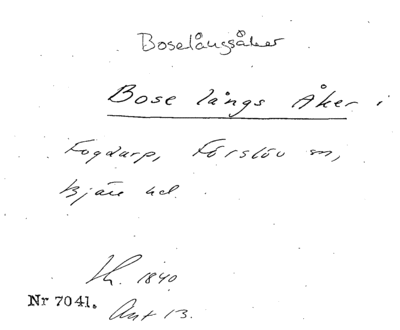 Boselångsåker
Bose långs Åker i
Fogdarp, Förslöv sn,
Bjäre hd.
Lh. 1840
Nr 7041. Akt 13.